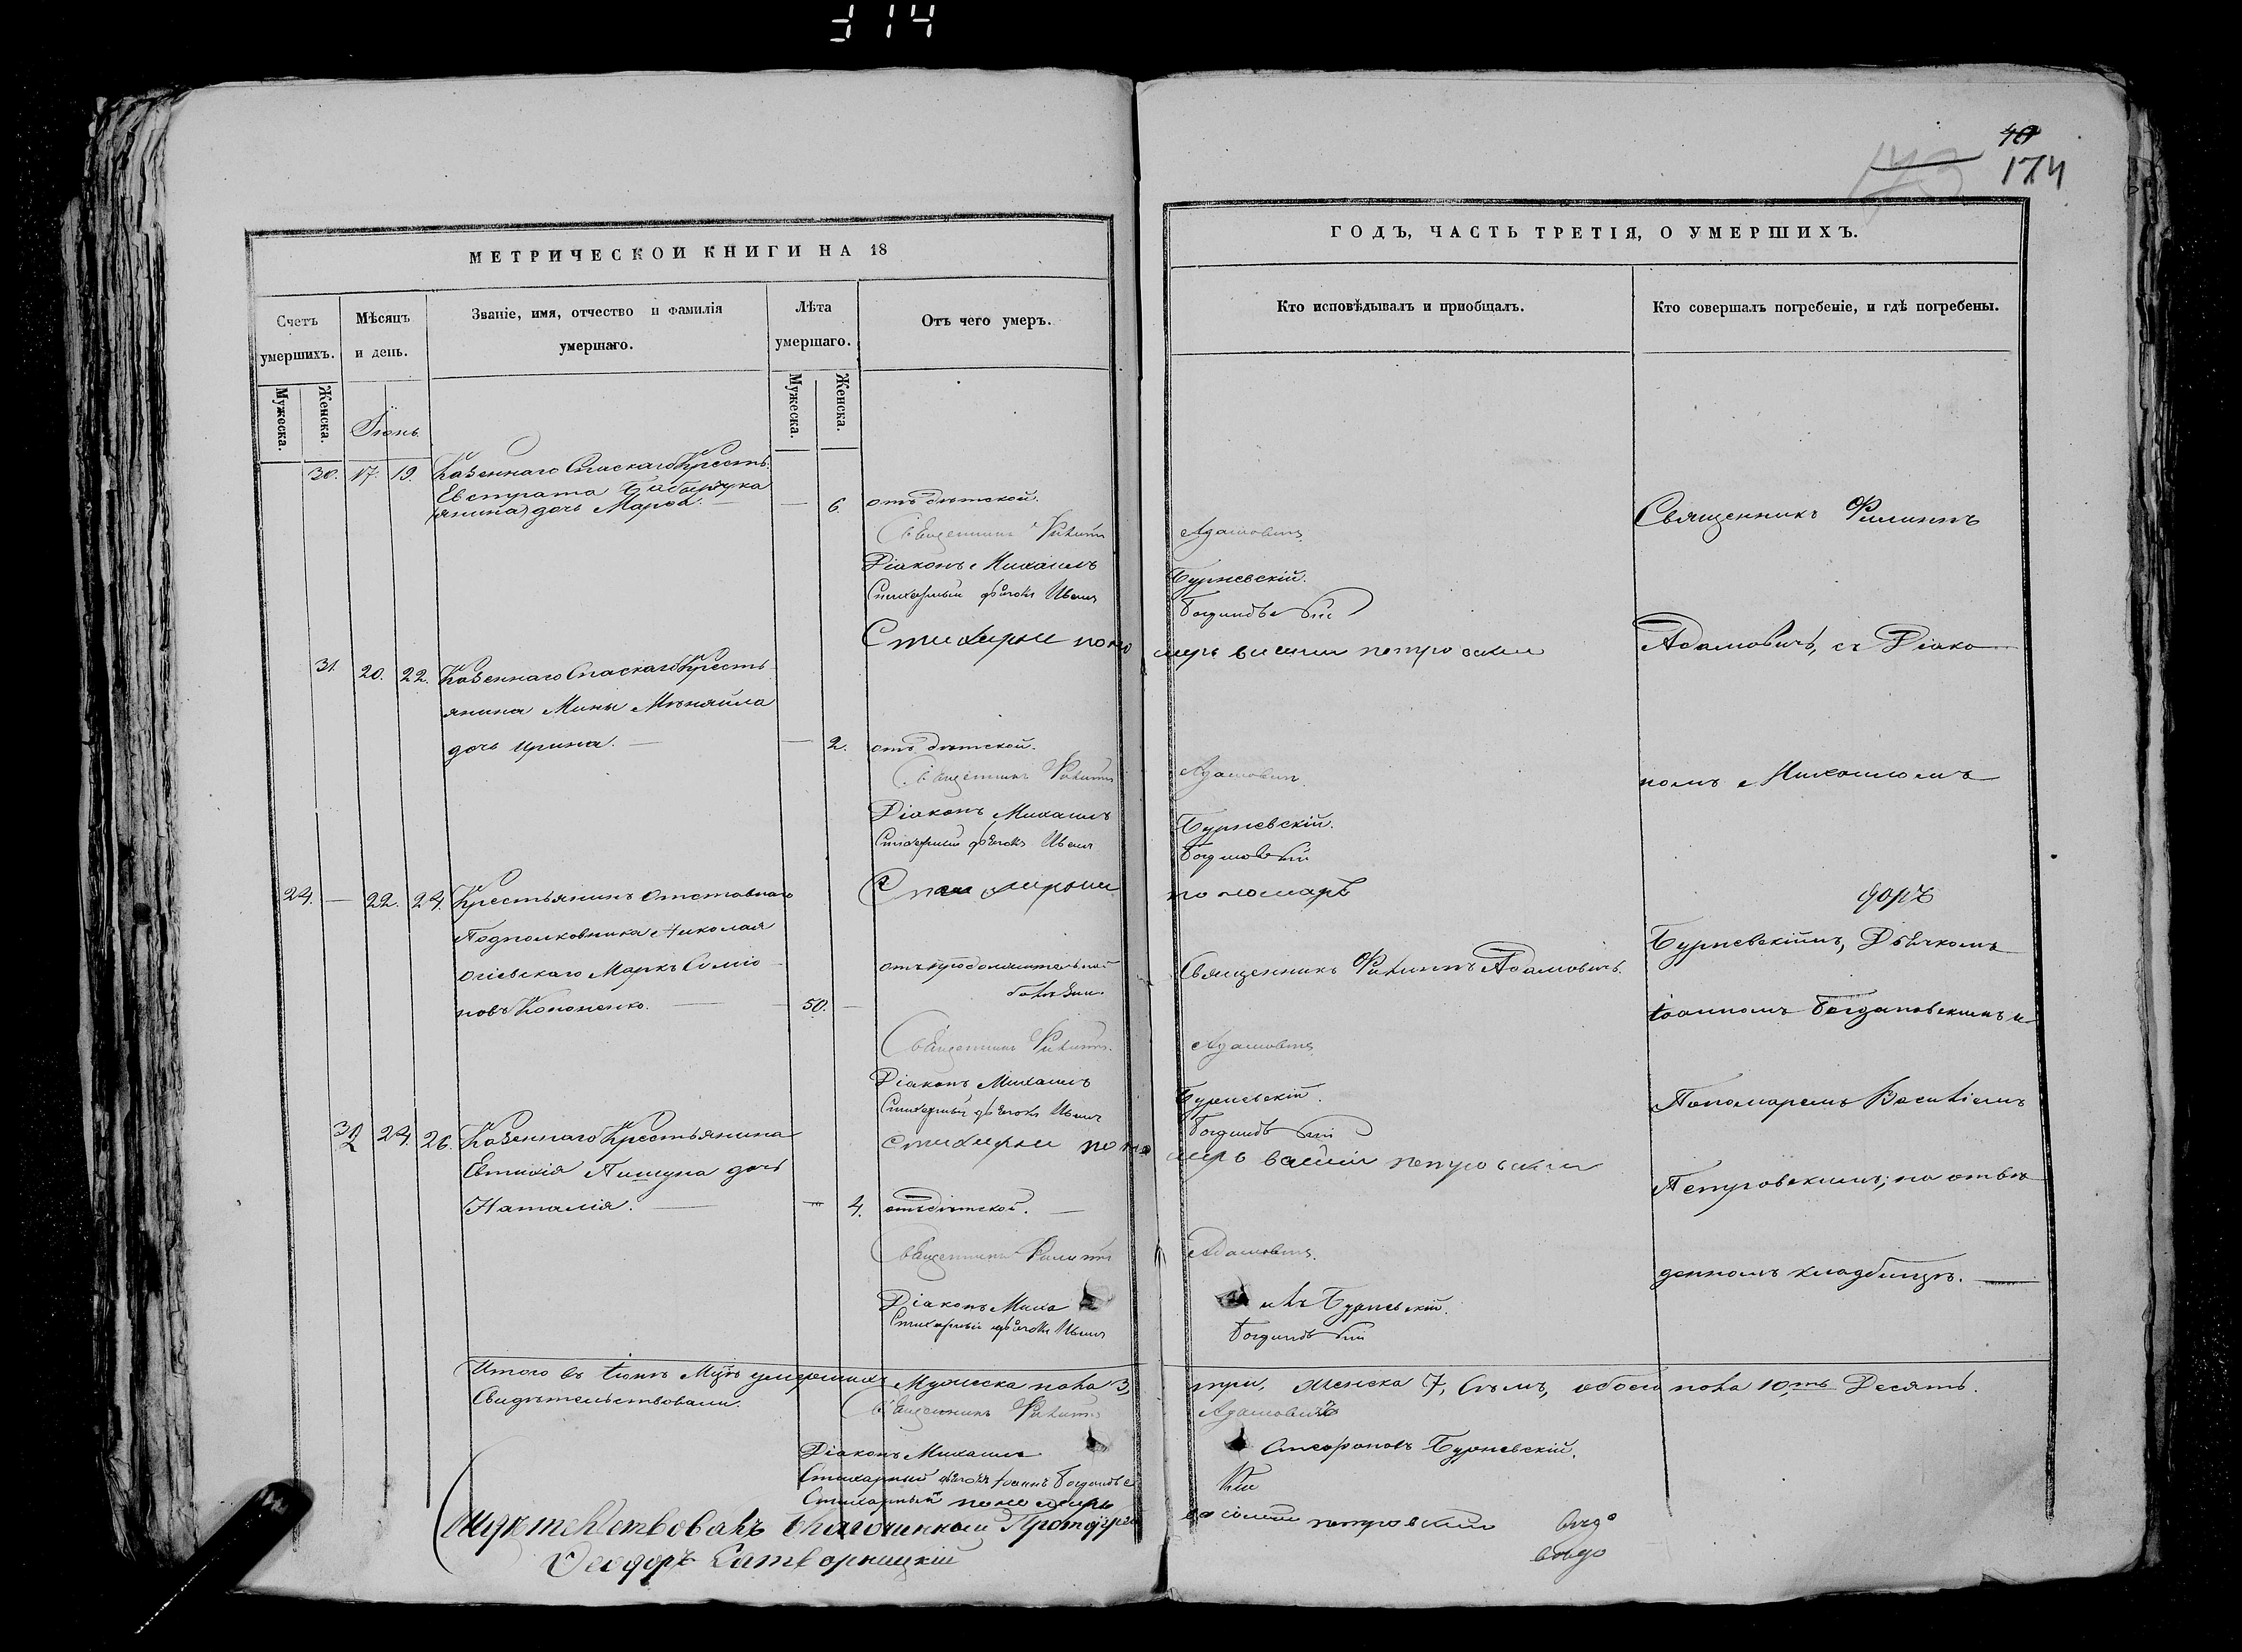 314
40
174
МЕТРИЧЕСКОЙ КНИГИ НА 18
Счетъ умершихъ.
Мѣсяцъ и день.
Званіе, имя, отчество и фамилія умершаго.
Лѣта умершаго.
Отъ чего умеръ.
Мужеска.
Женска.
Мужеска.
Женска.
Іюнь.
30. 17. 19. Казеннаго Спаскаго Кресть
Евстрата
янина дочь Марѳа. — — 6. отъ дѣтской.
Священникъ Филиппъ
Діаконъ Михаилъ
Стихарный дьячокъ Иванъ
Стихарный поно
31. 20. 22. Казеннаго Спаскаго Кресть
янина Мины Мѣняйла
дочь Ирина. — — 2. отъ дѣтской.
Священникъ Филиппъ
Діаконъ Михаилъ
Стихарный дьячокъ Иванъ
24. — 22. 24. Крестьянинъ отставнаго
Подполковника Николая
Маркъ Симіо
новъ Кононенко. — 50. —
отъ продолжительной
болѣзни.
Священникъ Филиппъ
Діаконъ Михаилъ
Стихарный дьячокъ Иванъ
Стихарный поно
32 24 26. Казеннаго Крестьянина
Евтихія Пишуна дочь
Наталія. — — 4. отъ дѣтской. —
Священникъ Филиппъ
Діаконъ Миха
Стихарный дьячокъ Иванъ
Итого въ Іюнѣ Мцѣ умершихъ Мужеска пола 3,
Свидѣтельствовали.
Священникъ Филиппъ
Діаконъ Михаилъ
Стихарный дьячокъ Іоаннъ Богданове
Стихарный пономарь
Свидѣтельствовалъ Благочинный Протоіерей
Ѳеодоръ
ГОДЪ, ЧАСТЬ ТРЕТІЯ, О УМЕРШИХЪ.
Кто исповѣдывалъ и пріобщалъ.
Кто совершалъ погребеніе, и гдѣ погребены.
Адамовичъ
Бурневскій.
маръ Василій Петровскій
Адамовичъ
Бурневскій.
пономаръ
Священникъ Филиппъ Адамовичъ.
Адамовичъ
Бурневскій.
маръ Василій Петровскій
Адамовичъ.
илъ Бурневскій.
три, Женска 7, Семь, обоего пола 10,ть Десять.
Адамовичъ
Стефановъ Бурневскій.
Василій Петровскій
Священникъ Филиппъ
Адамовичъ, съ Діако
номъ Михаиломъ
Бурневскимъ, Дьячкомъ
Іоанномъ Богдановскимъ и
Пономаремъ Василіемъ
Петровскимъ; на отве
денномъ кладбищѣ. —